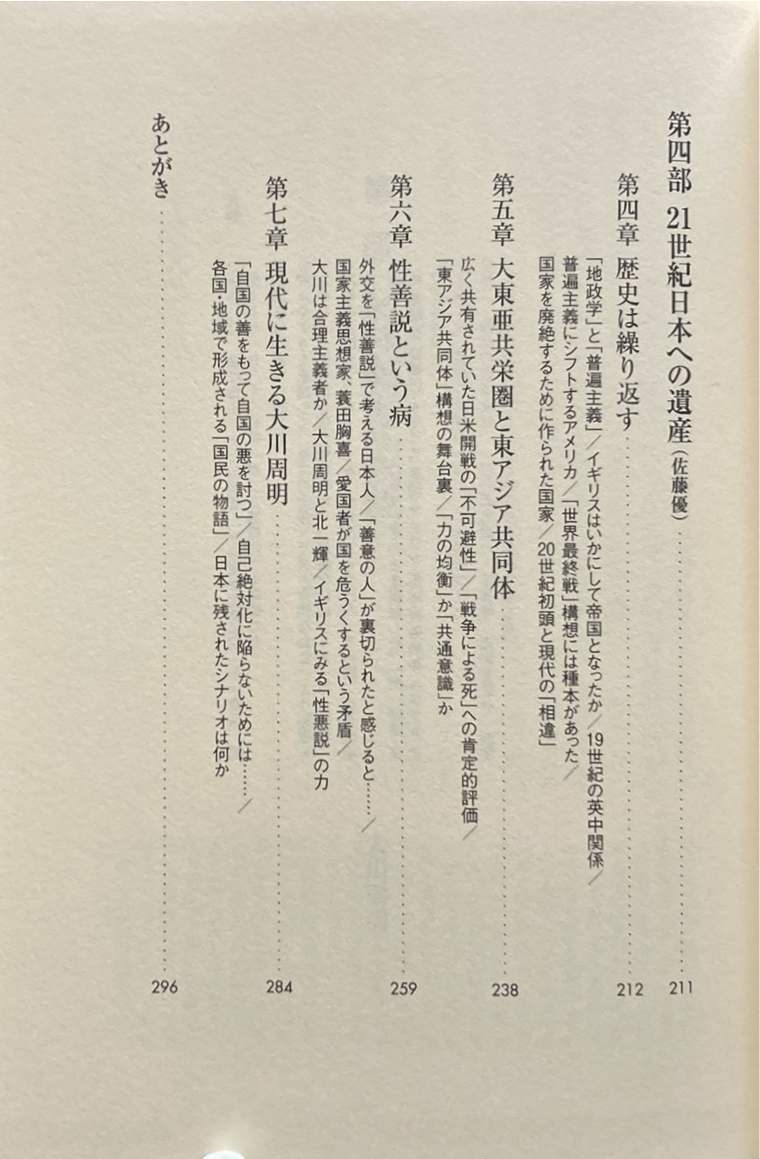 第四部 21世紀日本への遺産(佐藤優)‥‥‥‥‥‥‥‥‥‥‥‥‥‥‥‥‥‥‥‥ 211
第四章 歴史は繰り返す‥‥‥‥‥‥‥‥‥‥‥‥‥‥‥‥‥‥‥‥ 212
「地政学」と「普遍主義」/イギリスはいかにして帝国となったか/19世紀の英中関係/
普遍主義にシフトするアメリカ/「世界最終戦」構想には種本があった/
国家を廃絶するために作られた国家/20世紀初頭と現代の「相違」
第五章 大東亜共栄圏と東アジア共同体‥‥‥‥‥‥‥‥‥‥‥‥‥‥‥‥‥‥‥‥ 238
広く共有されていた日米開戦の「不可避性」/「戦争による死」への肯定的評価/
「東アジア共同体」構想の舞台裏/「力の均衡」か「共通意識」か
第六章 性善説という病‥‥‥‥‥‥‥‥‥‥‥‥‥‥‥‥‥‥‥‥ 259
外交を「性善説」で考える日本人/「善意の人」が裏切られたと感じると……/
国家主義思想家、蓑田胸喜/愛国者が国を危うくするという矛盾/
大川は合理主義者か/大川周明と北一輝/イギリスにみる「性悪説」の力
第七章 現代に生きる大川周明‥‥‥‥‥‥‥‥‥‥‥‥‥‥‥‥‥‥‥‥ 284
「自国の善をもって自国の悪を討つ」/自己絶対化に陥らないためには……/
各国・地域で形成される「国民の物語」/日本に残されたシナリオは何か
あとがき‥‥‥‥‥‥‥‥‥‥‥‥‥‥‥‥‥‥‥‥ 296